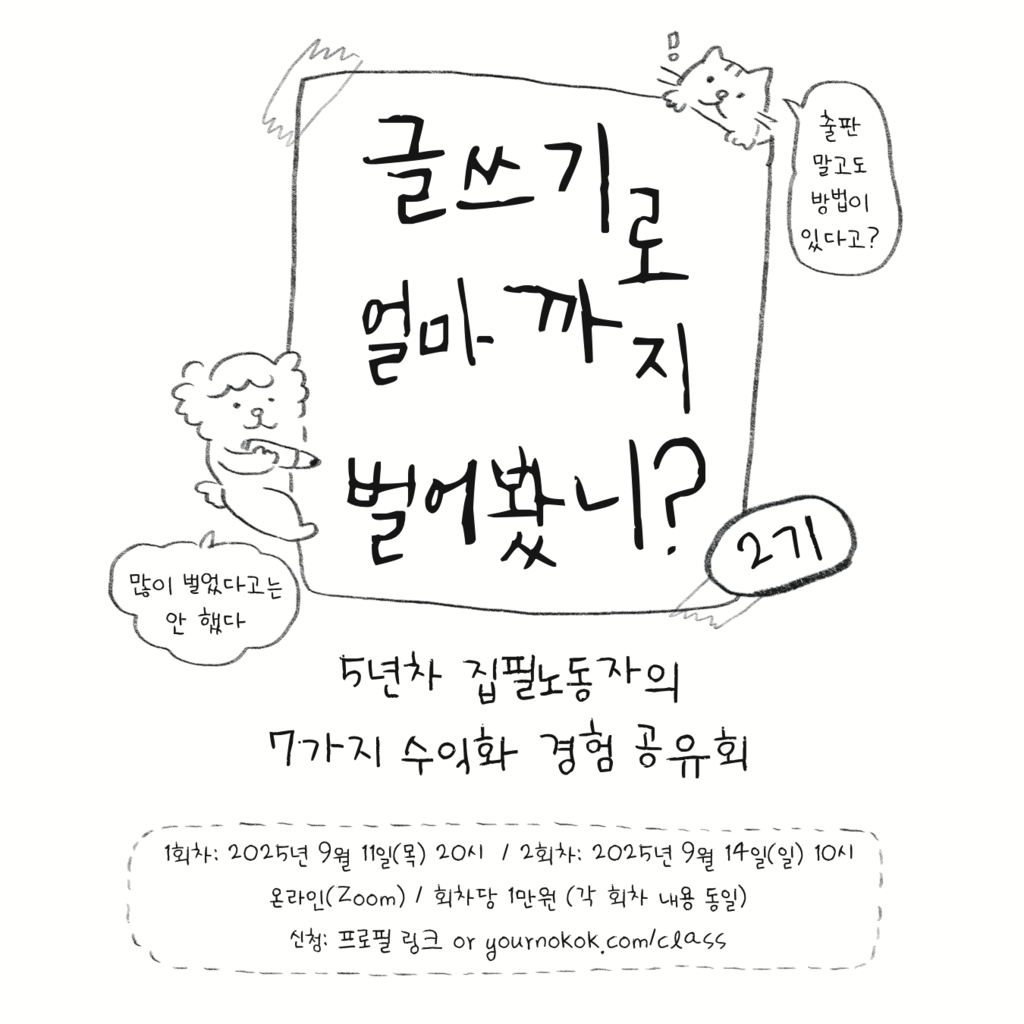 글쓰기로
얼마까지
벌어봤니?
출판
말고도
방법이
있다고?
2기
많이 벌었다고는
안 했다
5년차 집필노동자의
7가지 수익화 경험 공유회
1회차: 2025년 9월 11일(목) 20시 / 2회차: 2025년 9월 14일(일) 10시
온라인(Zoom) / 회차당 1만원 (각 회차 내용 동일)
신청: 프로필 링크 or yournokok.com/class